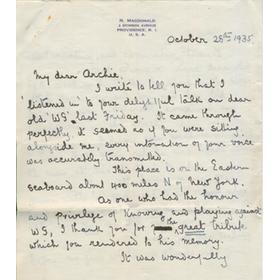 R. MACDONALD
PROVIDENCE, R. I.
U. S. A.
October 28th 1935
My dear Archie,
I write to tell you that I
'listened in' to your delightful talk on dear
old 'WS' last Friday. It came through
perfectly. It seemed as if you were sitting
alongside me, every intonation of your voice
was accurately transmitted.
This place is on the Eastern
seaboard about 200 miles N of New York.
As one who had the honour
and privilege of knowing and playing against
WS, I thank you for the great tribute
which you rendered to his memory.
It was wonderfully